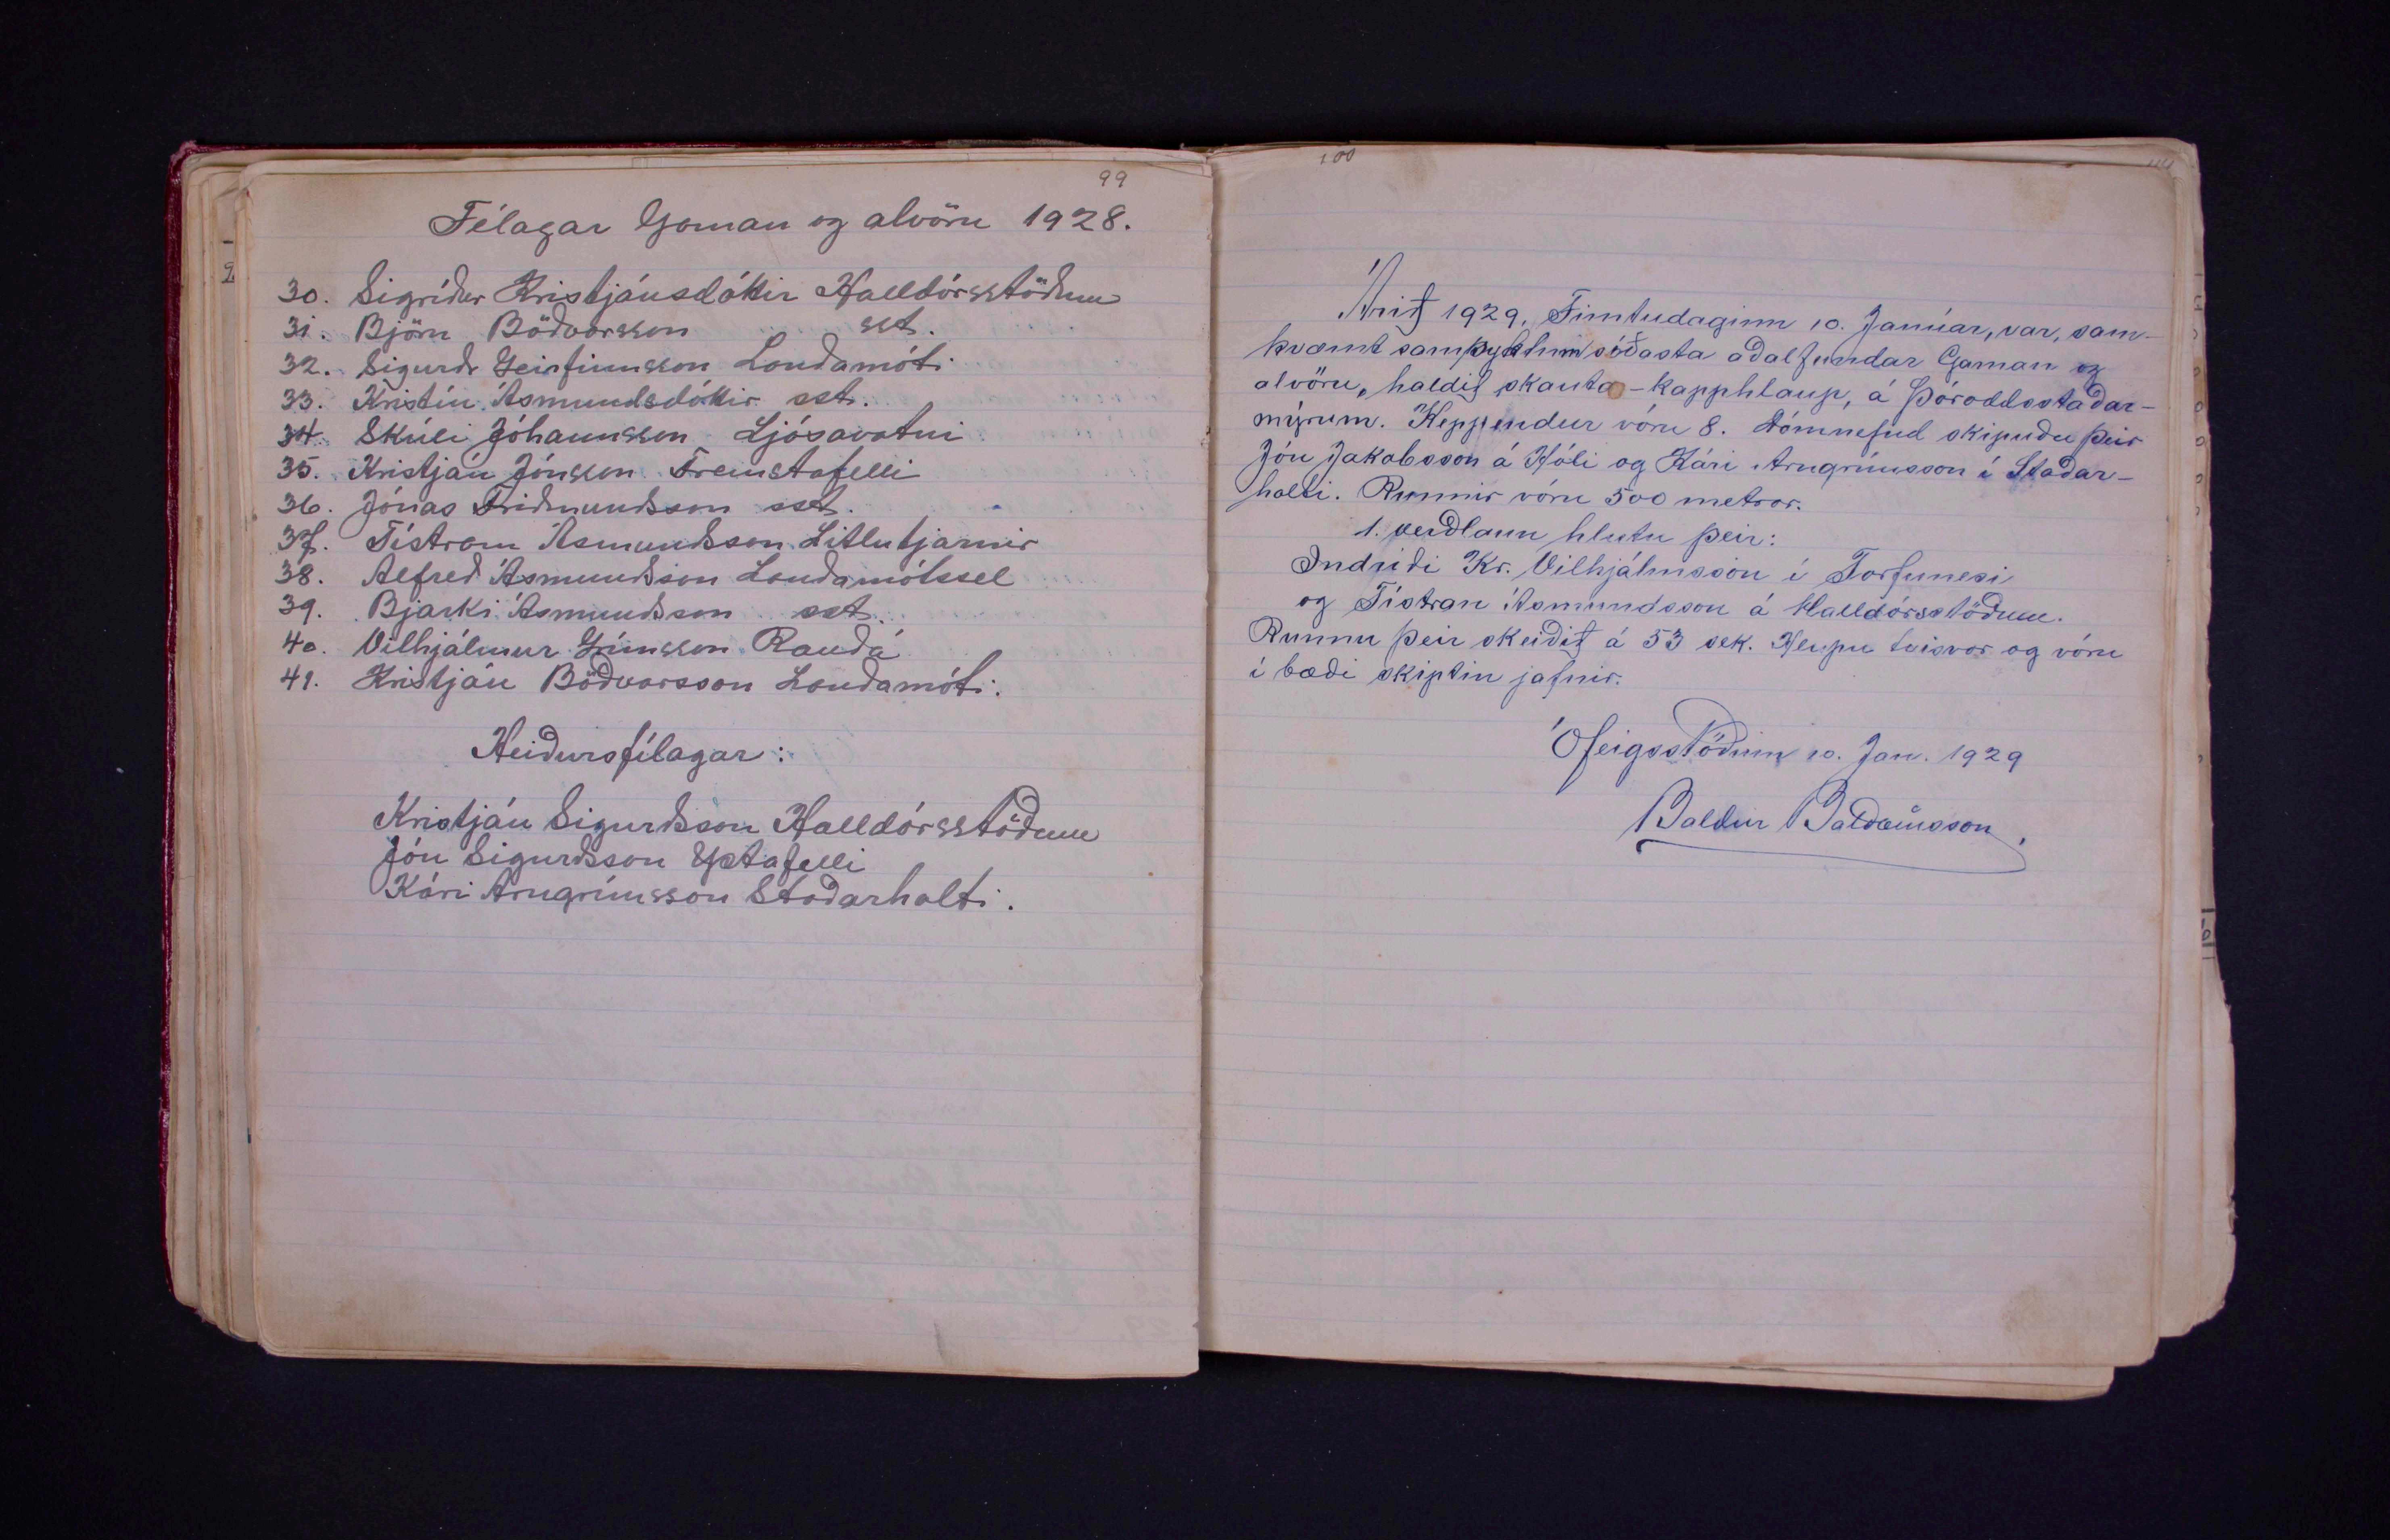 99
Félagar Gaman og alvöru 1928.
30. Sigríður Kristjánsdóttir Halldórsstöðum
31. Björn Böðvarsson sst.
32. Sigurðr Geirfinnsson Landamóti
33. Kristín Ásmundsdóttir sst.
34. Skúli Jóhannsson Ljósavatni
35. Kristján Jónsson Fremstafelli
36. Jónas Friðmundsson sst.
37. Tístram Ásmundsson Litlutjarnir
38. Alfreð Ásmundsson Landamótssel
39. Bjarki Ásmundsson sst.
40. Vilhjálmur Grímsson Rauðá
41. Kristján Böðvarsson Landamóti.
Heiðursfélagar:
Kristján Sigurðsson Halldórsstöðum
Jón Sigurðsson Ystafelli
Kári Arngrímsson Staðarholti.
100
Árið 1929, Fimtudaginn 10. Janúar, var, sam-
kvæmt samþyktum síðasta aðalfundar Gaman og
alvöru, haldið skauta-kapphlaup, á Þóroddsstaðar-
mýrum. Keppendur vóru 8. Dómnefnd skipuðu þeir
Jón Jakobsson á Hóli og Kári Arngrímsson í Staðar-
holti. Runnir vóru 500 metrar.
1. verðlaun hlutu þeir:
Indriði Kr. Vilhjálmsson í Torfunesi
og Tístran Ásmundsson á Halldórsstöðum.
Runnu þeir skeiðið á 53 sek. Hlupu tvisvar og vóru
í bæði skiptin jafnir.
Ófeigsstöðum 10. Jan. 1929
Baldur Baldvinsson.